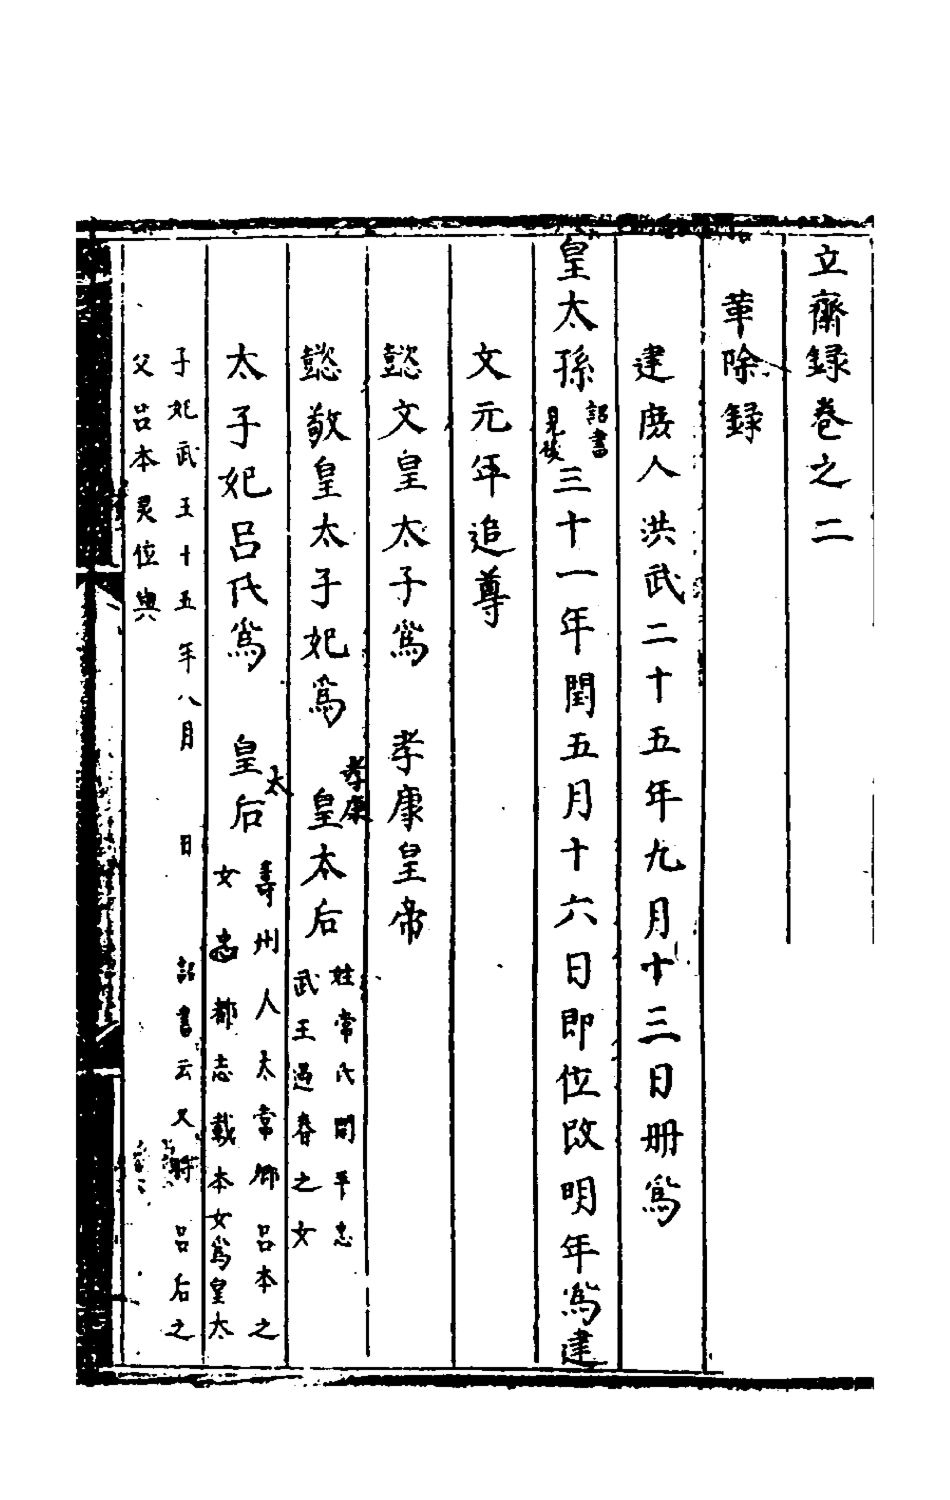 立齋録卷之二
革除録
建庶人洪武二十五年九月十三日册爲
皇太孫詔書見後三十一年閏五月十六日即位改明年爲建
文元年追尊
懿文皇太子爲 孝康皇帝
懿敬皇太子妃爲 孝康皇太后姓常氏開平忠武王遇春之女
太子妃吕氏爲 皇太后壽州人太常卿吕本之女志都志載本女爲皇太
子妃武王十五年八月 日 詔書云又時吕后之
父吕本灵位與